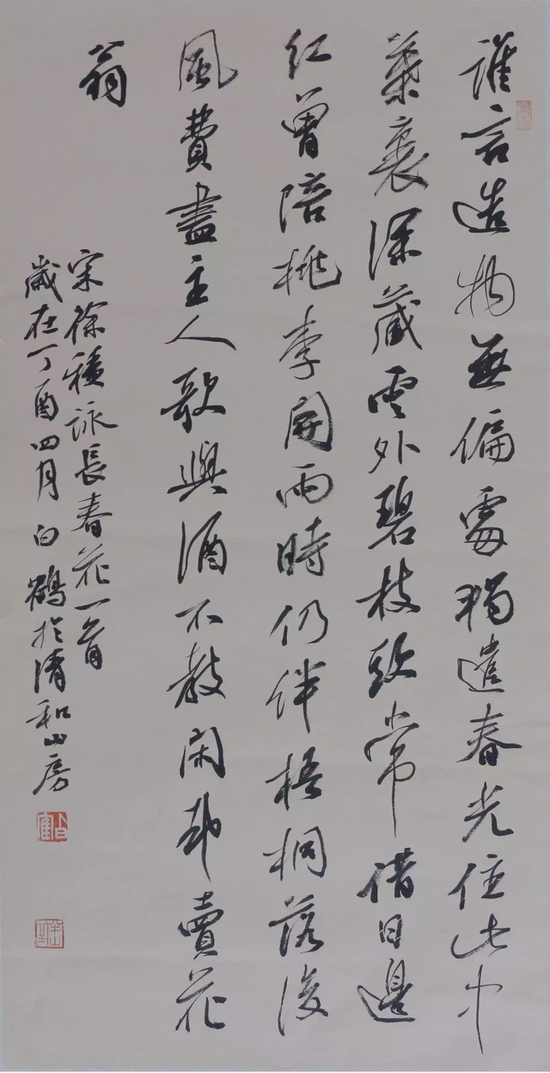 誰言造物無偏處獨遣春光住此中
葉裏深藏雲外碧枝頭常借日邊
紅曾陪桃李開雨時仍伴梧桐落後
風費盡主人歌與酒不教閑却賣花
翁
宋徐積詠長春花一首
歲在丁酉四月白鶴於清和山房